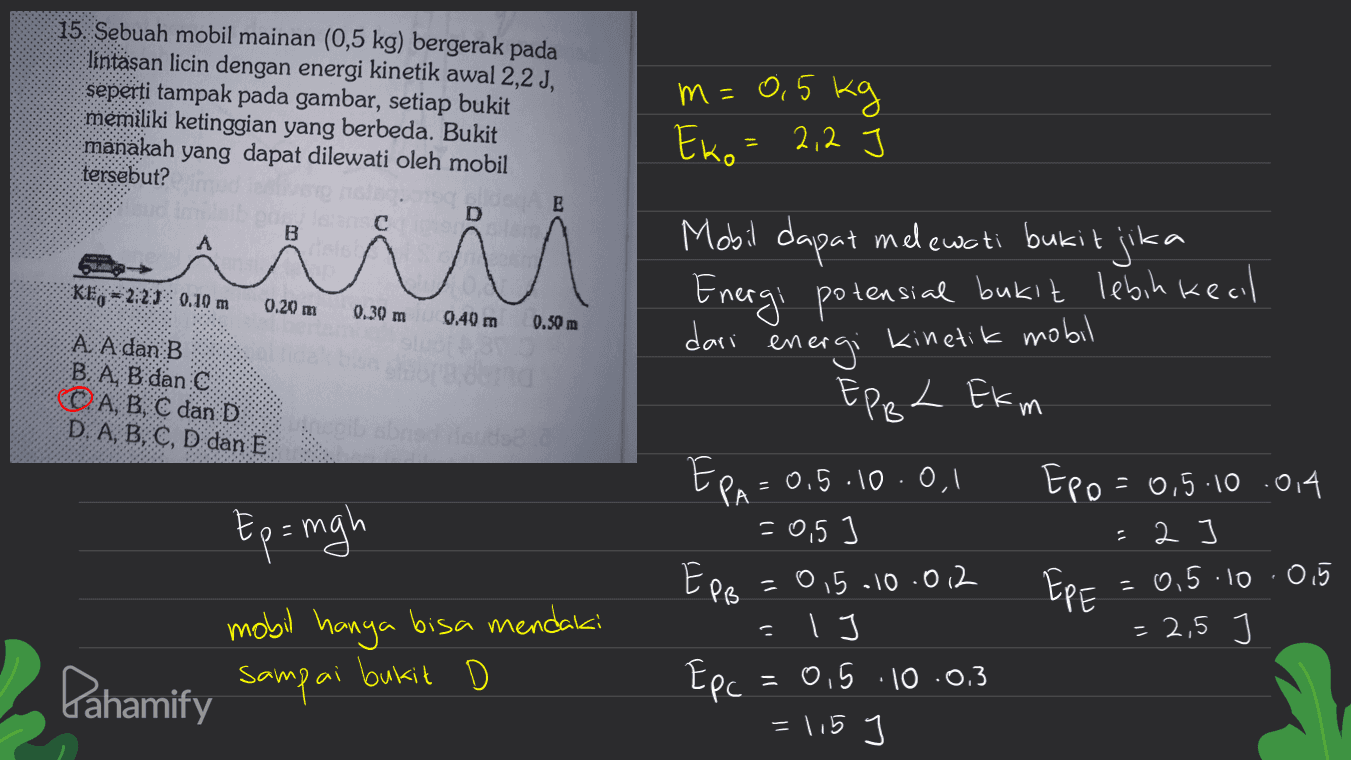 15. Sebuah mobil mainan (0,5 kg) bergerak pada
lintasan licin dengan energi kinetik awal 2,2 J,
seperti tampak pada gambar, setiap bukit
memiliki ketinggian yang berbeda. Bukit
manakah yang dapat dilewati oleh mobil
tersebut?
A B C D E
KE₀ = 2.2 J 0.10 m 0.20 m 0.30 m 0.40 m 0.50 m
A. A dan B
B. A, B dan C
C. A, B, C dan D
D. A, B, C, D dan E
Ep = mgh
mobil hanya bisa mendaki
sampai bukit D
Pahamify
m = 0,5 kg
Ek₀ = 2,2 J
Mobil dapat melewati bukit jika
Energi potensial bukit lebih kecil
dari energi kinetik mobil
EPB < Ekm
EPA = 0,5 . 10 . 0,1
= 0,5 J
EPB = 0,5 . 10 . 0,2
= 1 J
EPC = 0,5 . 10 . 0,3
= 1,5 J
EPD = 0,5 . 10 . 0,4
= 2 J
EPE = 0,5 . 10 . 0,5
= 2,5 J